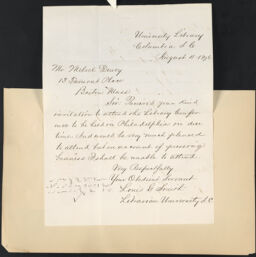 University Library
Columbia S C
August 11 1876
Mr Melvil Dewey
13 Tremont Place
Boston Mass
Sir Received your kind
invitation to attend the Library Confer-
ence to be held in Philadelphia in due
time. And would be very much pleased
to attend but on account of pressing
business I shall be unable to attend.
Very Respectfully
Your Obedient Servant
Louis G Smith
Librarian University S.C.